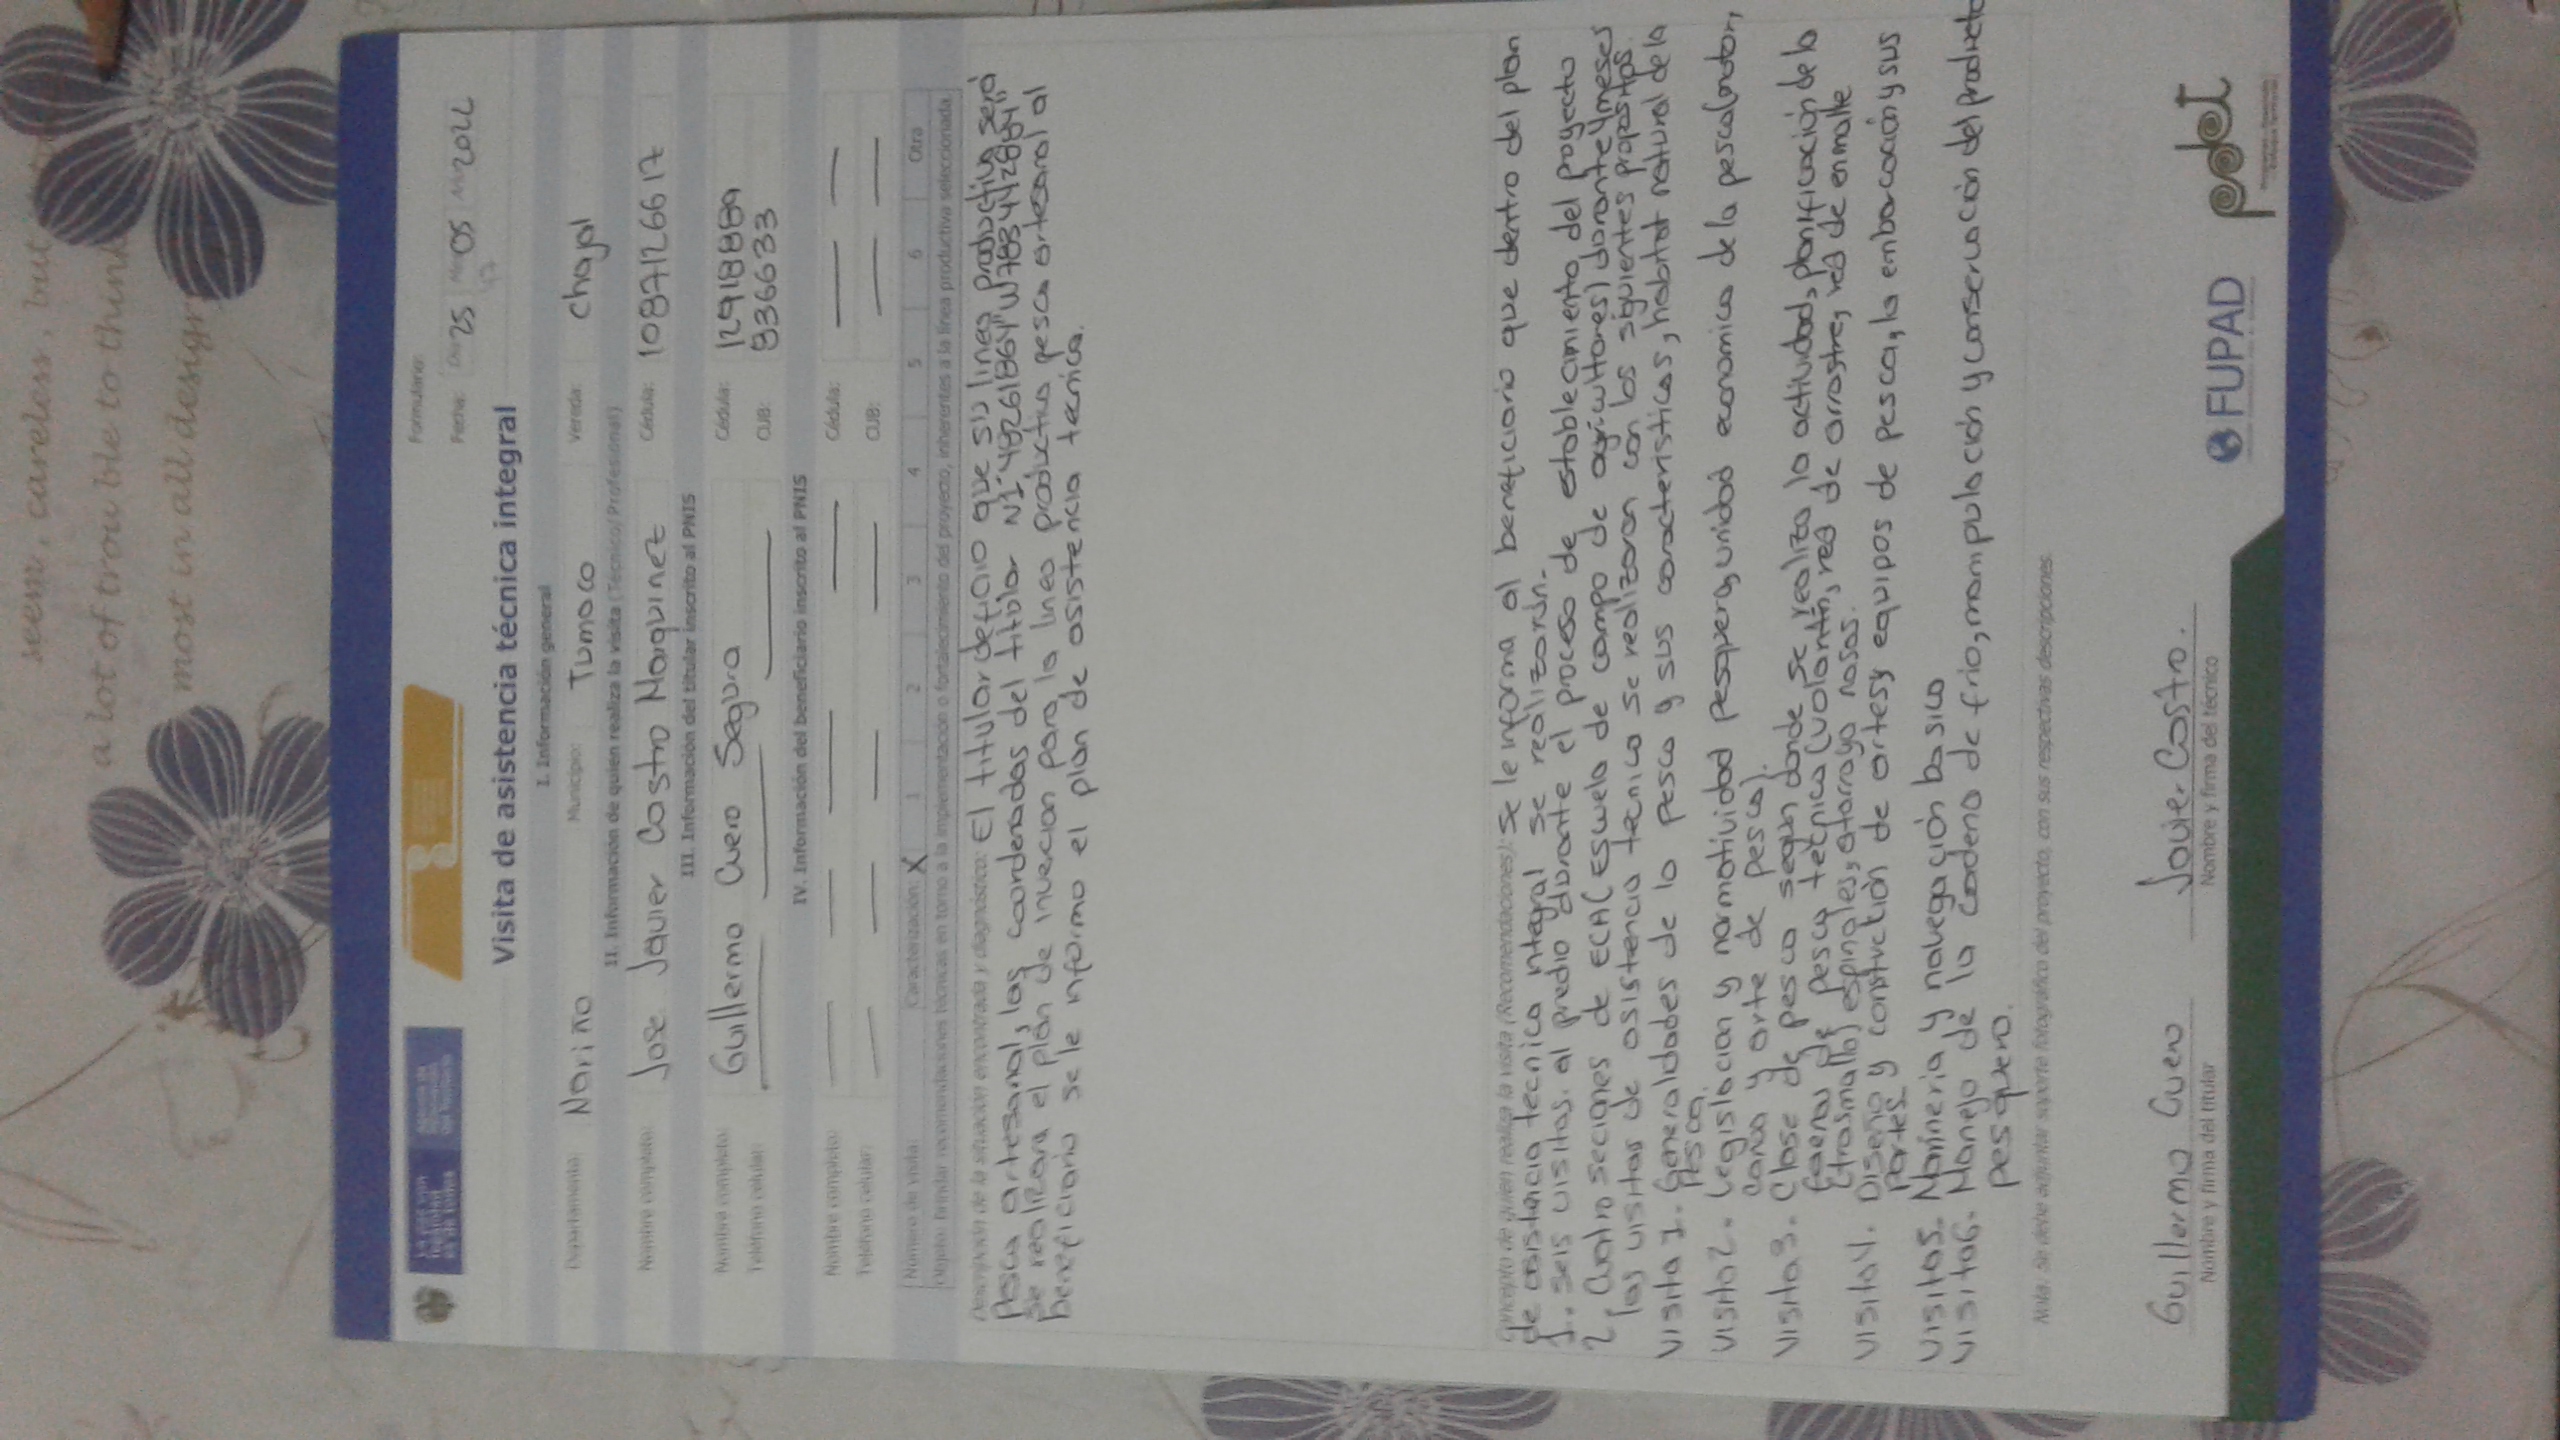 seem, careless, but
a lot of trouble to think
most in all design
Formulario:
Fecha: 25 05 2022
Visita de asistencia técnica integral
I. Información general
Departamento: Nariño Municipio: Tumaco Vereda: chajal
II. Información de quien realiza la visita (Técnico/Profesional)
Nombre completo: Jose Javier Castro Marquinez Cédula: 1087126617
III. Información del titular inscrito al PNIS
Nombre completo: Guillermo Cuero Segura Cédula: 12918889
Teléfono celular: CUB: 9366633
IV. Información del beneficiario inscrito al PNIS
Nombre completo: Cédula:
Teléfono celular: CUB:
Número de visita: Caracterización: X 1 2 3 4 5 6 Otra
Objeto: Brindar recomendaciones técnicas en torno a la implementación o fortalecimiento del proyecto, inherentes a la línea productiva seleccionada.
Descripción de la situación encontrada y diagnóstico: El titular definio que su linea productiva será
Pesca artesanal, las cordenadas del titular
se realizara el plan de invercion para la linea productiva pesca artesanal al
beneficiario se le informo el plan de asistencia tecnica.
Concepto de quien realiza la visita (Recomendaciones): se le informa al beneficiario que dentro del plan
de asistencia tecnica integral se realizarán.
1.. seis visitas. al predio durante el proceso de establecimiento del proyecto
2. Cuatro seciones de ECA (Escuela de campo de agricultores) durante 4 meses
las visitas de asistencia tecnica se realizaran con los siguientes propositos.
visita 1. Generaldades de la pesca y sus caracteristicas, habitat natural de la
Pesca.
visita 2. Legislacion y normatividad pesquera, unidad economica de la pesca (motor,
canoa y arte de pesca).
visita 3. Clase de pesca según donde se realiza la actividad, planificación de la
faena de pesca y tecnica (volantín, red de arrastre, red de enmalle
(trasmallo) espineles, atarraya nasas.
visita 4. Diseño y construcción de artes y equipos de pesca, la embarcación y sus
partes.
visita 5. Marineria y navegación basica
visita 6. Manejo de la cadena de frio, manipulación y conservación del producto
pesquero.
Nota: Se debe adjuntar soporte fotográfico del proyecto, con sus respectivas descripciones.
Guillermo Cuero Javier Castro.
Nombre y firma del titular Nombre y firma del técnico
FUPAD
pdet